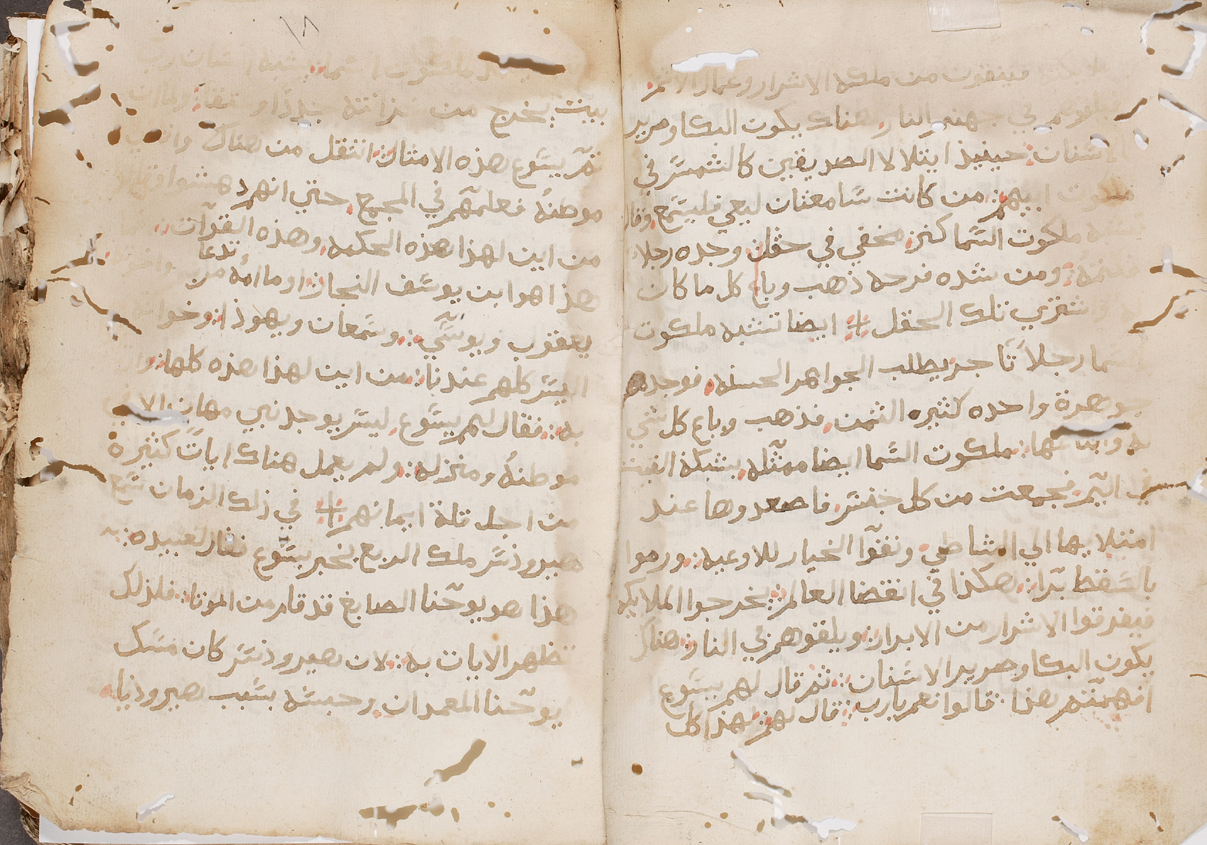 فينقون من ملكه الاشرار وعمال الاثم
في جهنم النار هناك يكون البكا وصرير
الاسنان حينيذ ايتلالا الصديقين كالشمس في
ابيهم من كانت سامعتان ليعي فليسمع وقال
ملكوت السما كنز مخفي في حقل وحده رجلا
ومن شده فرحه ذهب وباع كل ما كان
واشتري تلك الحقل ايضا تشبه ملكوت
رجلا تاجر يطلب الجواهر الحسنه فوجد
جوهرة واحده كثيره الثمن فذهب وباع كل شي
ملكوت السما ايضا ممثله بشبكه القيت
في البحر فجمعت من كل جنس فاصعدوها عند
امتلايها الي الشاطي ونقوا الخيار للاوعيه ورموا
بالسقط برا هكذا في انقضا العالم يخرجوا الملايكه
فيفرقوا الاشرار من الابرار ويلقوهم في النار هناك
يكون البكا وصرير الاسنان ثم قال لهم يسوع
افهمتم هذا قالوا نعم يارب قال لهم لهذا كل
ملكوت السما يشبه انسان رب
بيت يخرج من جددا وعتقا
يسوع هذه الامثال انتقل من هناك
موطنه فعلمهم في المجمع حتي انهم
من اين لهذا هذه الحكمه وهذه القوات
هذا هو ابن يوسف النجار اوما امه تدعا
يعقوب ويوسي وسمعان ويهوذا
كلهم عندنا من اين لهذا هذه كلها
به فقال لهم يسوع ليس يوجد نبي مهان الا في
موطنه ومنزله ولم يعمل هناك ايات كثيرة
من اجل قلة ايمانهم في ذلك الزمان سمع
هيرودس ملك الربع بخبر يسوع فقال لعبيده
هذا هو يوحنا الصابغ قد قام من الموتا فلذلك
تظهر الايات به لان هيرودس كان مسك
يوحنا المعمدان وحبسه بسبب هيروديا